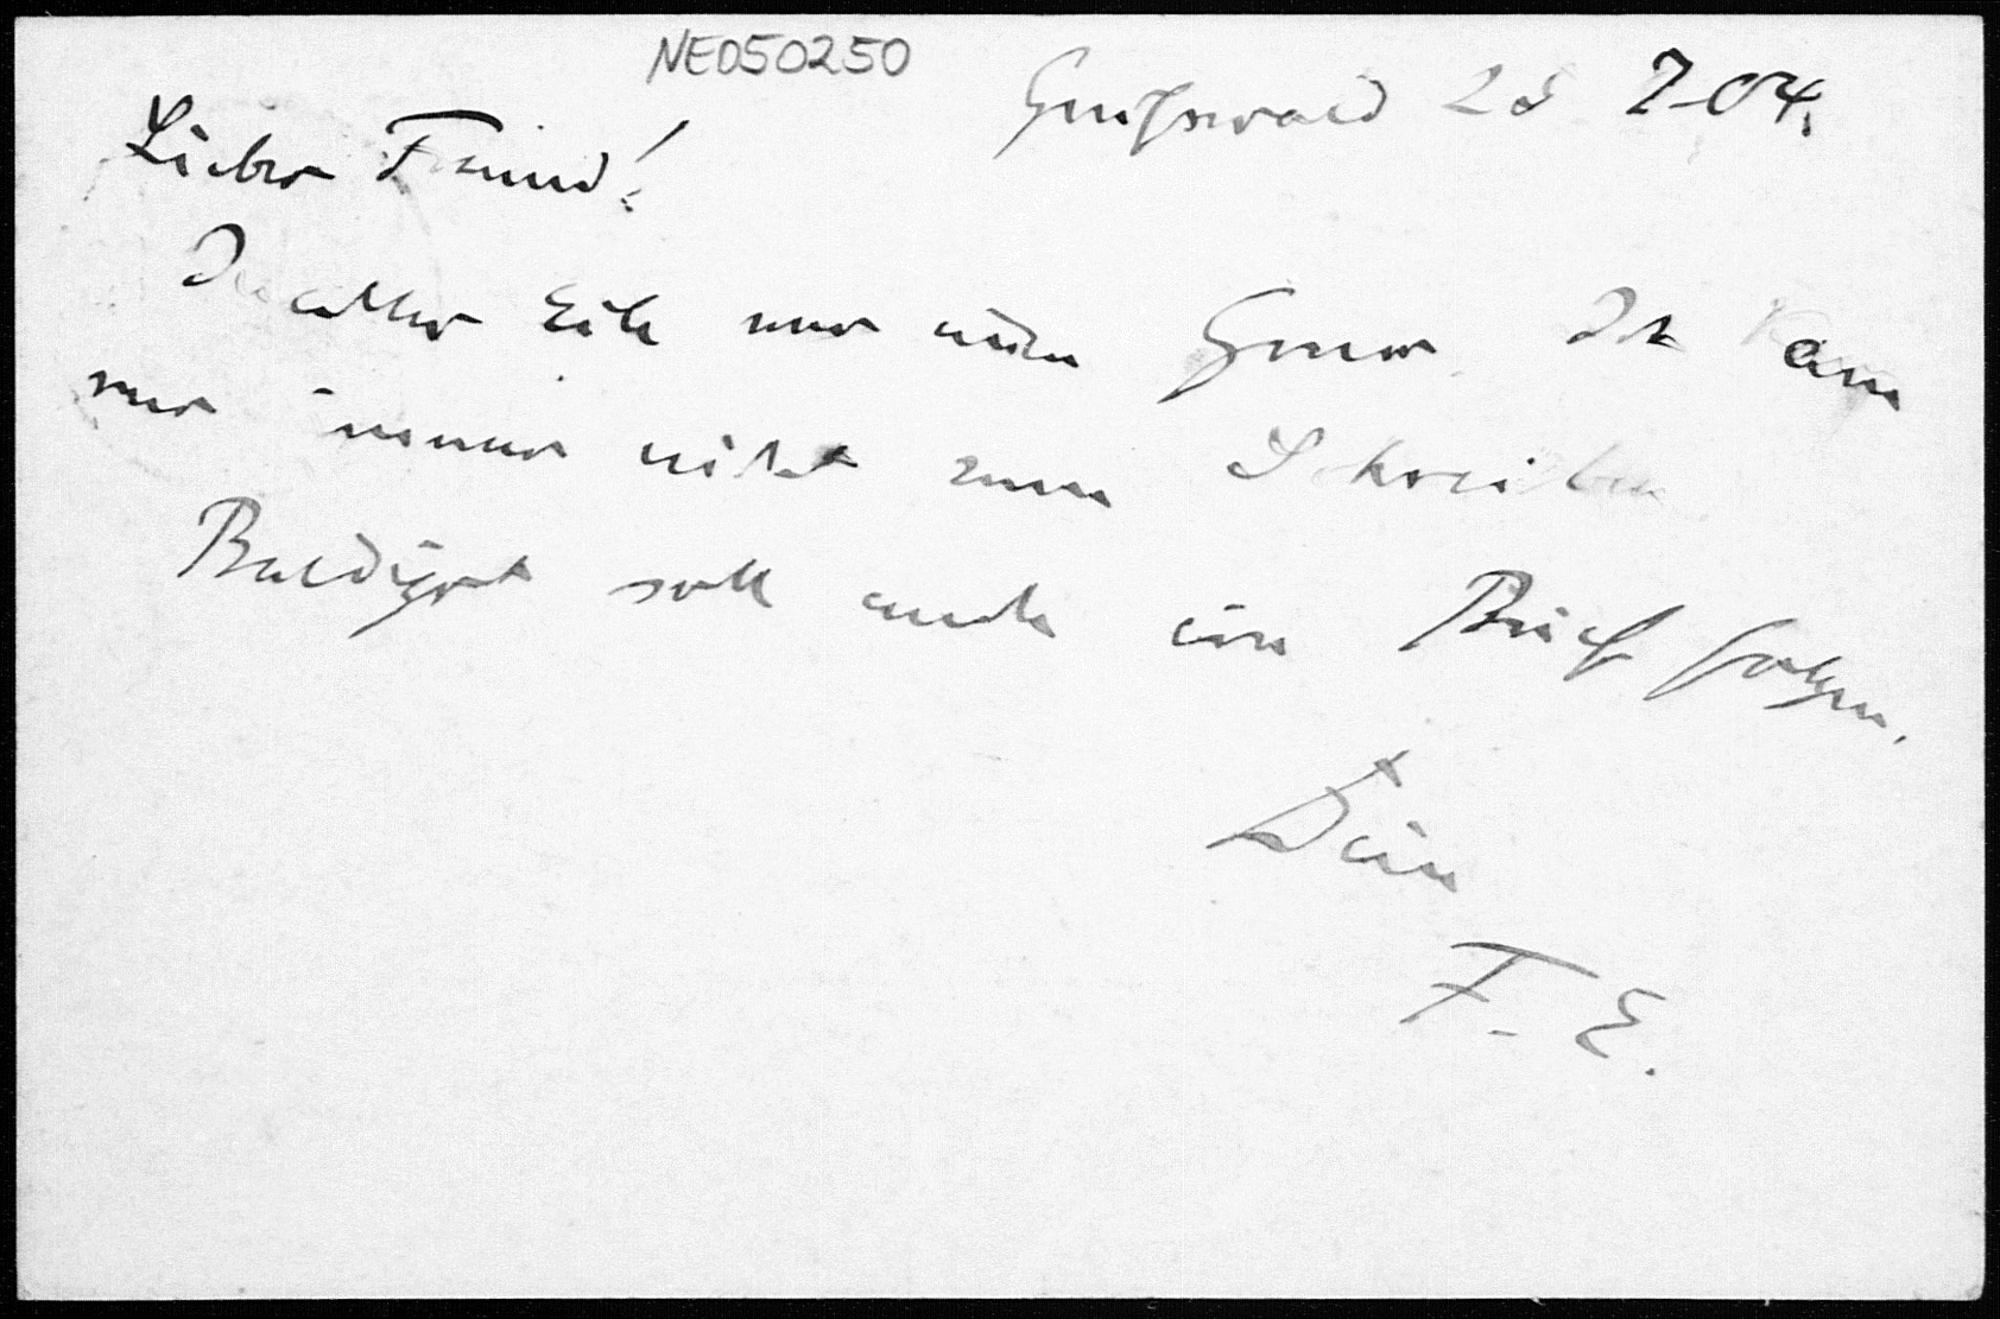 NE050250
Greifswald 28 7-04.
Lieber Freund!
In aller Eile nur einen Gruss. Ich kam
nur immer nicht zum Schreiben
Baldigst soll auch ein Brief folgen.
Dein
F. E.